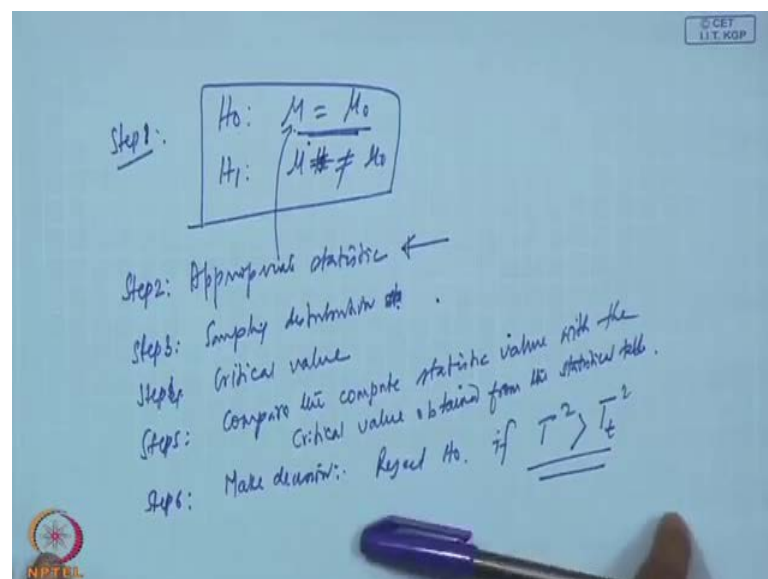 © CET
I.I.T. KGP
Step 1:
H0: μ = μ0
H1: μ ≠ μ0
Step2: Appropriate statistic ←
Step3: Sampling distribution .
Step4: Critical value
Step5: Compare the compute statistic value with the
Critical value obtained from the statistical table.
Step6: Make decision: Reject H0. if T² > Tt²
NPTEL